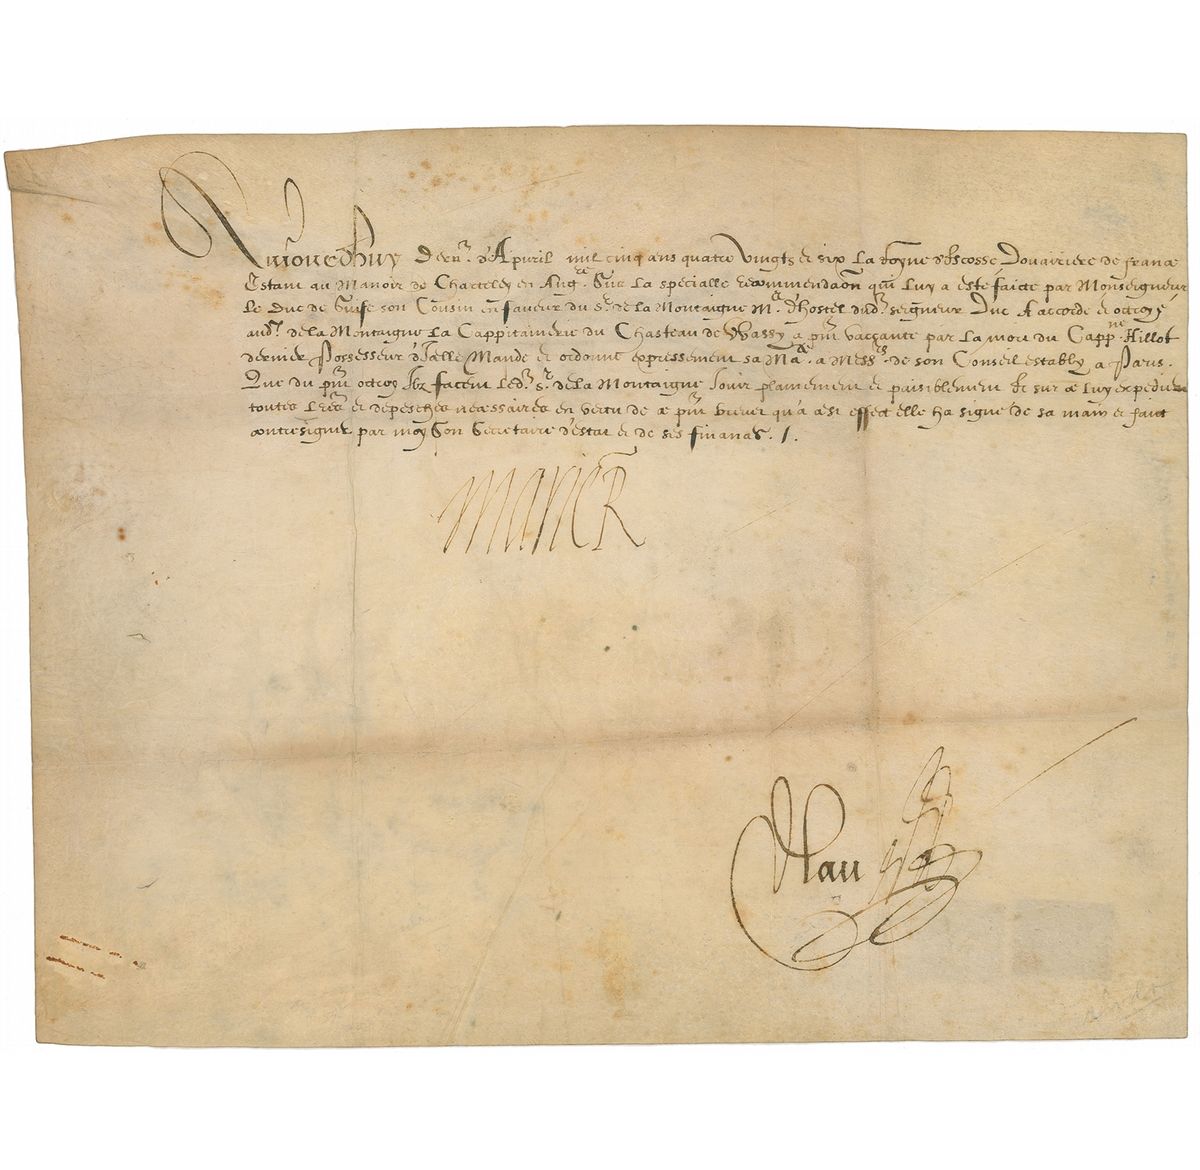 Aujourdhuy dern.r d'Apuril mil cinq cens quatre vingts et six La Royne d'Escosse Douairiere de france
Estant au Manoir de Charteley en Ang.re Sur la specialle recommendaon qui luy a esté faicte par Monseigneur
le Duc de Guise son Cousin en faueur du s.r de la Montaigne M.e d'hostel dud. seigneur Duc A accordé et octroyé
aud. s.r de la Montaigne la Cappitainerie du Chasteau de Wassy a pnt vaccante par la mort du Cappne Hillot
dernier Possesseur d'Jcelle Mande et ordonne expressement sa Ma.te a Mess.rs de son Conseil estably a Paris.
Que du pnt octroy Jlz facent led. s.r de la Montaigne Jouir plainement et paisiblement Et sur ce luy expedient
toutes lres et depesches necessaires en vertu de ce pnt breuet qu'a cest effect elle ha signé de sa main et faict
contresigner par moy Son Secretaire d'estat et de ses finances. /.
Marie R
Nau